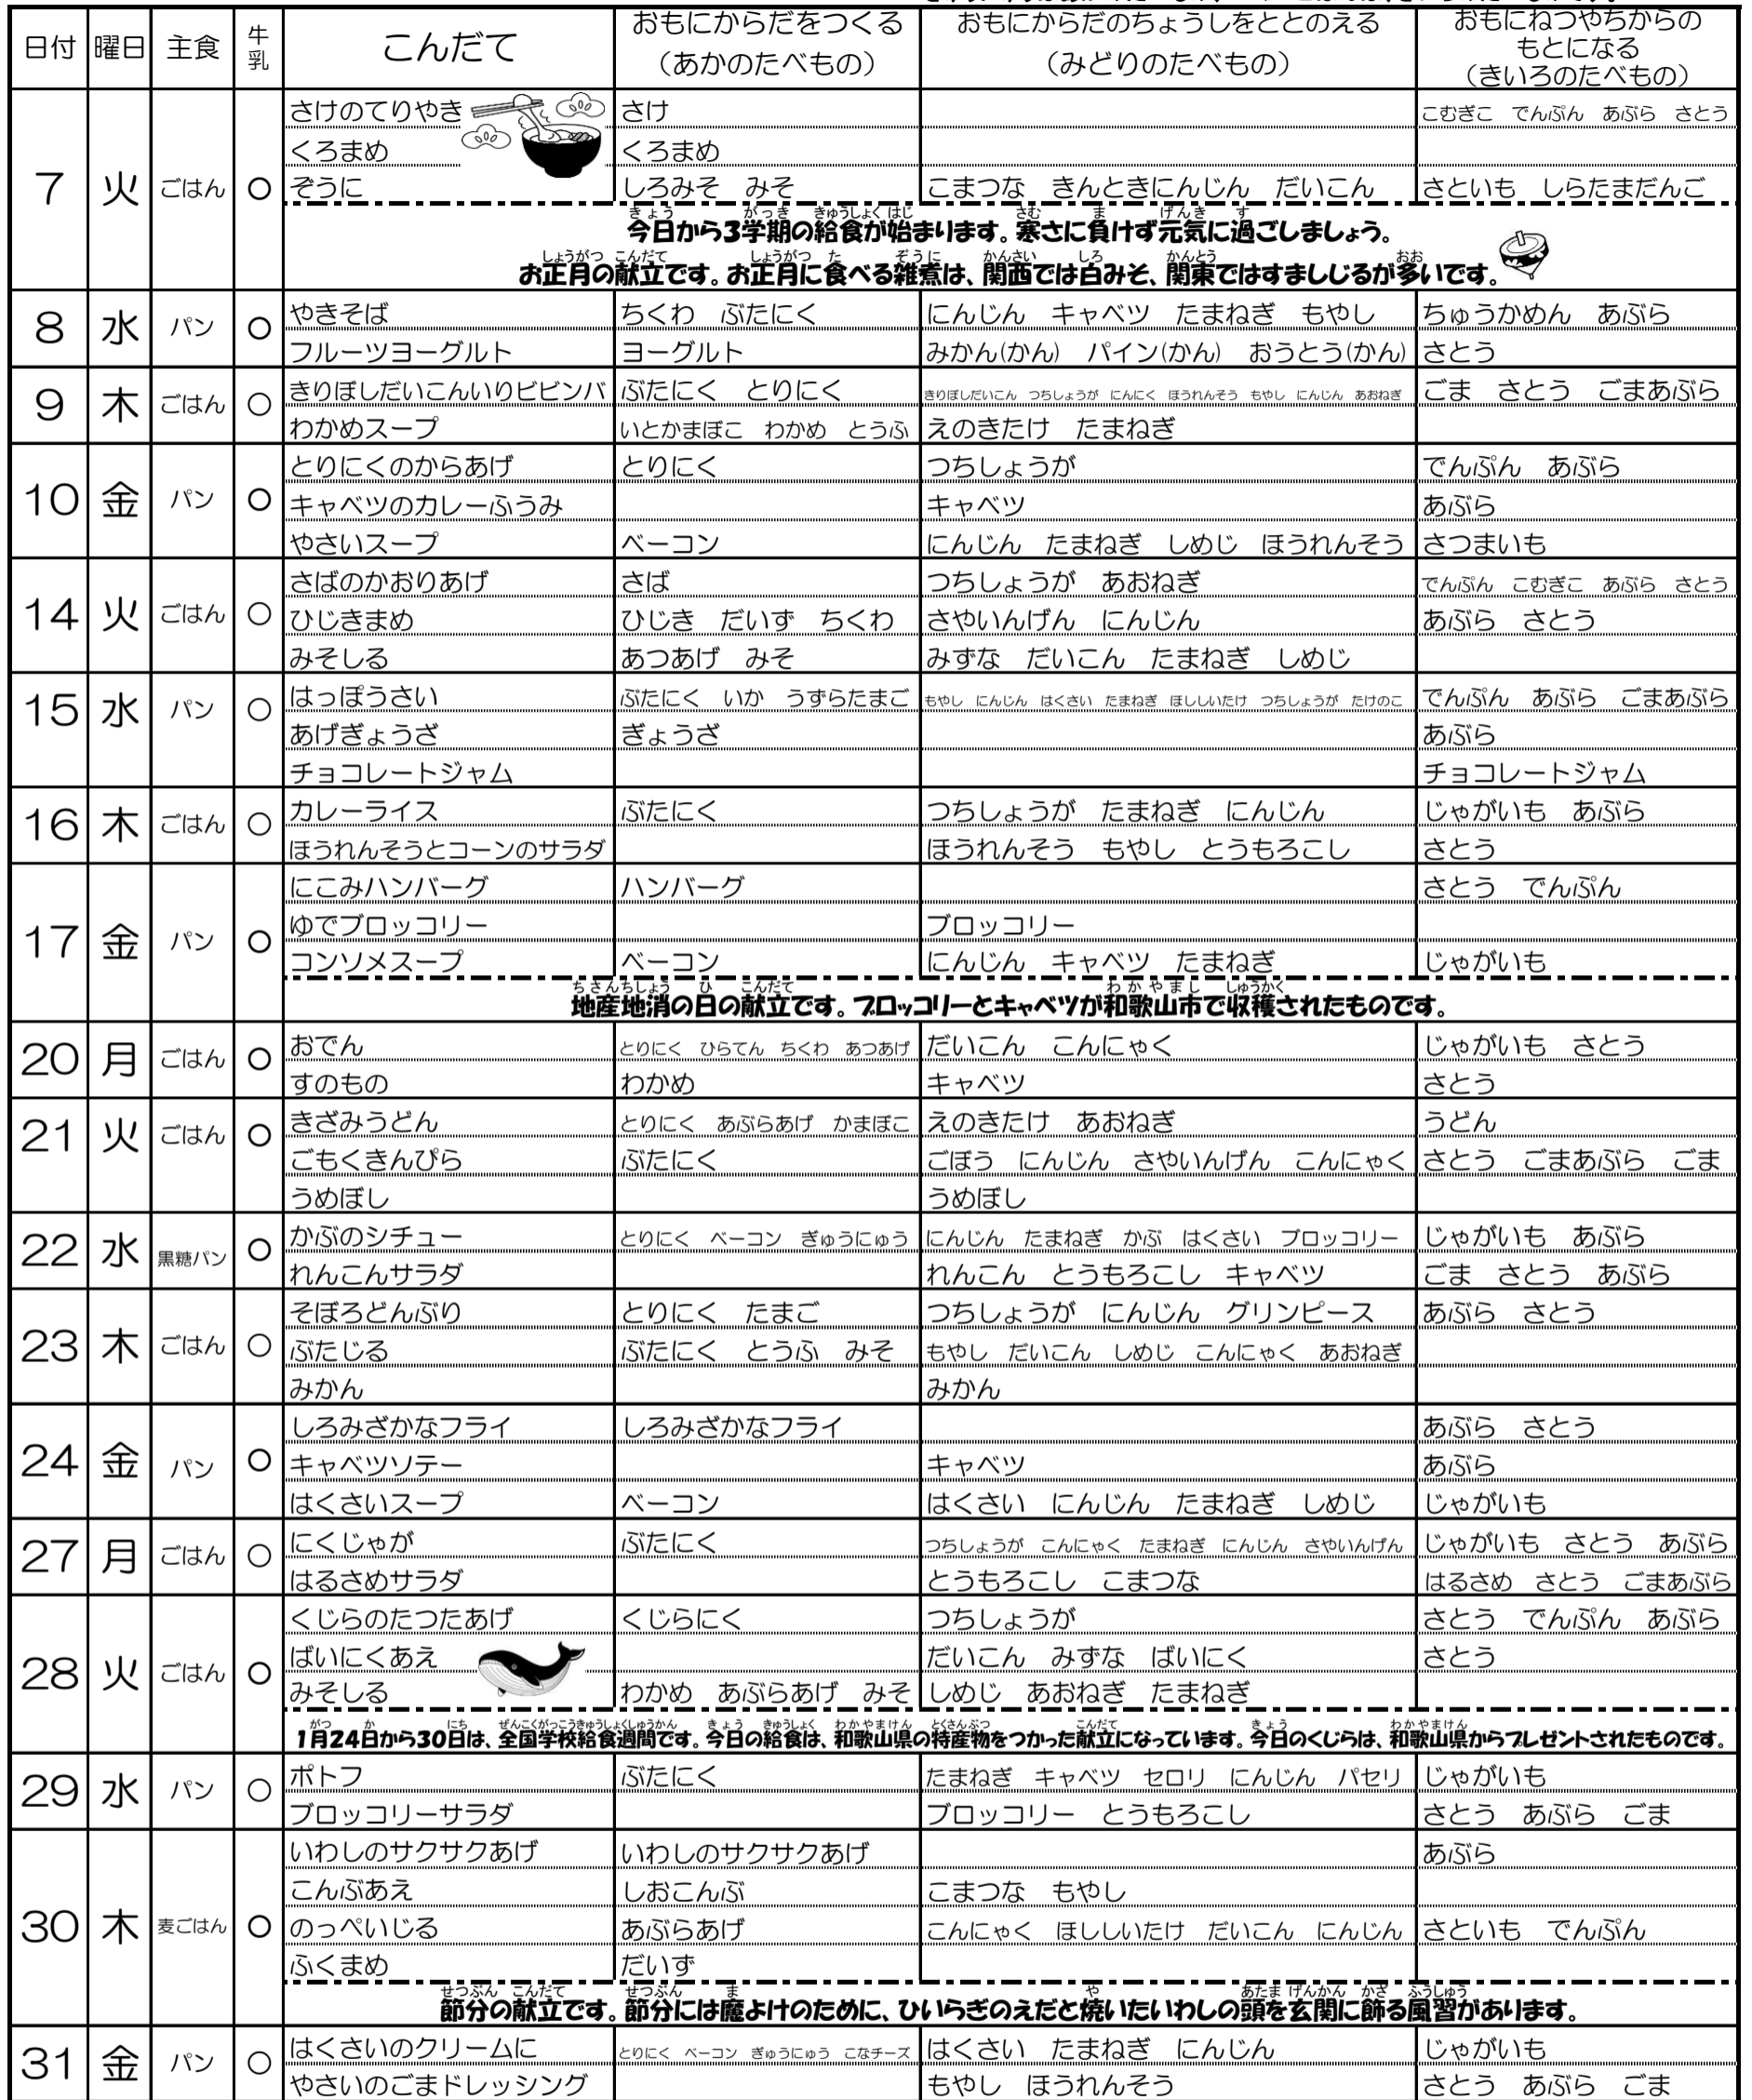 日付 曜日 主食 牛乳 こんだて おもにからだをつくる（あかのたべもの） おもにからだのちょうしをととのえる（みどりのたべもの） おもにねつやちからのもとになる（きいろのたべもの）
7 火 ごはん ○ さけのてりやき さけ こむぎこ でんぷん あぶら さとう
くろまめ くろまめ
ぞうに しろみそ みそ こまつな きんときにんじん だいこん さといも しらたまだんご
今日から3学期の給食が始まります。寒さに負けず元気に過ごしましょう。
お正月の献立です。お正月に食べる雑煮は、関西では白みそ、関東ではすましじるが多いです。
8 水 パン ○ やきそば ちくわ ぶたにく にんじん キャベツ たまねぎ もやし ちゅうかめん あぶら
フルーツヨーグルト ヨーグルト みかん(かん) パイン(かん) おうとう(かん) さとう
9 木 ごはん ○ きりぼしだいこんいりビビンバ ぶたにく とりにく きりぼしだいこん つちしょうが にんにく ほうれんそう もやし にんじん あおねぎ ごま さとう ごまあぶら
わかめスープ いとかまぼこ わかめ とうふ えのきたけ たまねぎ
10 金 パン ○ とりにくのからあげ とりにく つちしょうが でんぷん あぶら
キャベツのカレーふうみ キャベツ あぶら
やさいスープ ベーコン にんじん たまねぎ しめじ ほうれんそう さつまいも
14 火 ごはん ○ さばのかおりあげ さば つちしょうが あおねぎ でんぷん こむぎこ あぶら さとう
ひじきまめ ひじき だいず ちくわ さやいんげん にんじん あぶら さとう
みそしる あつあげ みそ みずな だいこん たまねぎ しめじ
15 水 パン ○ はっぽうさい ぶたにく いか うずらたまご もやし にんじん はくさい たまねぎ ほししいたけ つちしょうが たけのこ でんぷん あぶら ごまあぶら
あげぎょうざ ぎょうざ あぶら
チョコレートジャム チョコレートジャム
16 木 ごはん ○ カレーライス ぶたにく つちしょうが たまねぎ にんじん じゃがいも あぶら
ほうれんそうとコーンのサラダ ほうれんそう もやし とうもろこし さとう
17 金 パン ○ にこみハンバーグ ハンバーグ さとう でんぷん
ゆでブロッコリー ブロッコリー
コンソメスープ ベーコン にんじん キャベツ たまねぎ じゃがいも
地産地消の日の献立です。ブロッコリーとキャベツが和歌山市で収穫されたものです。
20 月 ごはん ○ おでん とりにく ひらてん ちくわ あつあげ だいこん こんにゃく じゃがいも さとう
すのもの わかめ キャベツ さとう
21 火 ごはん ○ きざみうどん とりにく あぶらあげ かまぼこ えのきたけ あおねぎ うどん
ごもくきんぴら ぶたにく ごぼう にんじん さやいんげん こんにゃく さとう ごまあぶら ごま
うめぼし うめぼし
22 水 黒糖パン ○ かぶのシチュー とりにく ベーコン ぎゅうにゅう にんじん たまねぎ かぶ はくさい ブロッコリー じゃがいも あぶら
れんこんサラダ れんこん とうもろこし キャベツ ごま さとう あぶら
23 木 ごはん ○ そぼろどんぶり とりにく たまご つちしょうが にんじん グリンピース あぶら さとう
ぶたじる ぶたにく とうふ みそ もやし だいこん しめじ こんにゃく あおねぎ
みかん みかん
24 金 パン ○ しろみざかなフライ しろみざかなフライ あぶら さとう
キャベツソテー キャベツ あぶら
はくさいスープ ベーコン はくさい にんじん たまねぎ しめじ じゃがいも
27 月 ごはん ○ にくじゃが ぶたにく つちしょうが こんにゃく たまねぎ にんじん さやいんげん じゃがいも さとう あぶら
はるさめサラダ とうもろこし こまつな はるさめ さとう ごまあぶら
28 火 ごはん ○ くじらのたつたあげ くじらにく つちしょうが さとう でんぷん あぶら
ばいにくあえ だいこん みずな ばいにく さとう
みそしる わかめ あぶらあげ みそ しめじ あおねぎ たまねぎ
1月24日から30日は、全国学校給食週間です。今日の給食は、和歌山県の特産物をつかった献立になっています。今日のくじらは、和歌山県からプレゼントされたものです。
29 水 パン ○ ポトフ ぶたにく たまねぎ キャベツ セロリ にんじん パセリ じゃがいも
ブロッコリーサラダ ブロッコリー とうもろこし さとう あぶら ごま
30 木 麦ごはん ○ いわしのサクサクあげ いわしのサクサクあげ あぶら
こんぶあえ しおこんぶ こまつな もやし
のっぺいじる あぶらあげ こんにゃく ほししいたけ だいこん にんじん さといも でんぷん
ふくまめ だいず
節分の献立です。節分には魔よけのために、ひいらぎのえだと焼いたいわしの頭を玄関に飾る風習があります。
31 金 パン ○ はくさいのクリームに とりにく ベーコン ぎゅうにゅう こなチーズ はくさい たまねぎ にんじん じゃがいも
やさいのごまドレッシング もやし ほうれんそう さとう あぶら ごま